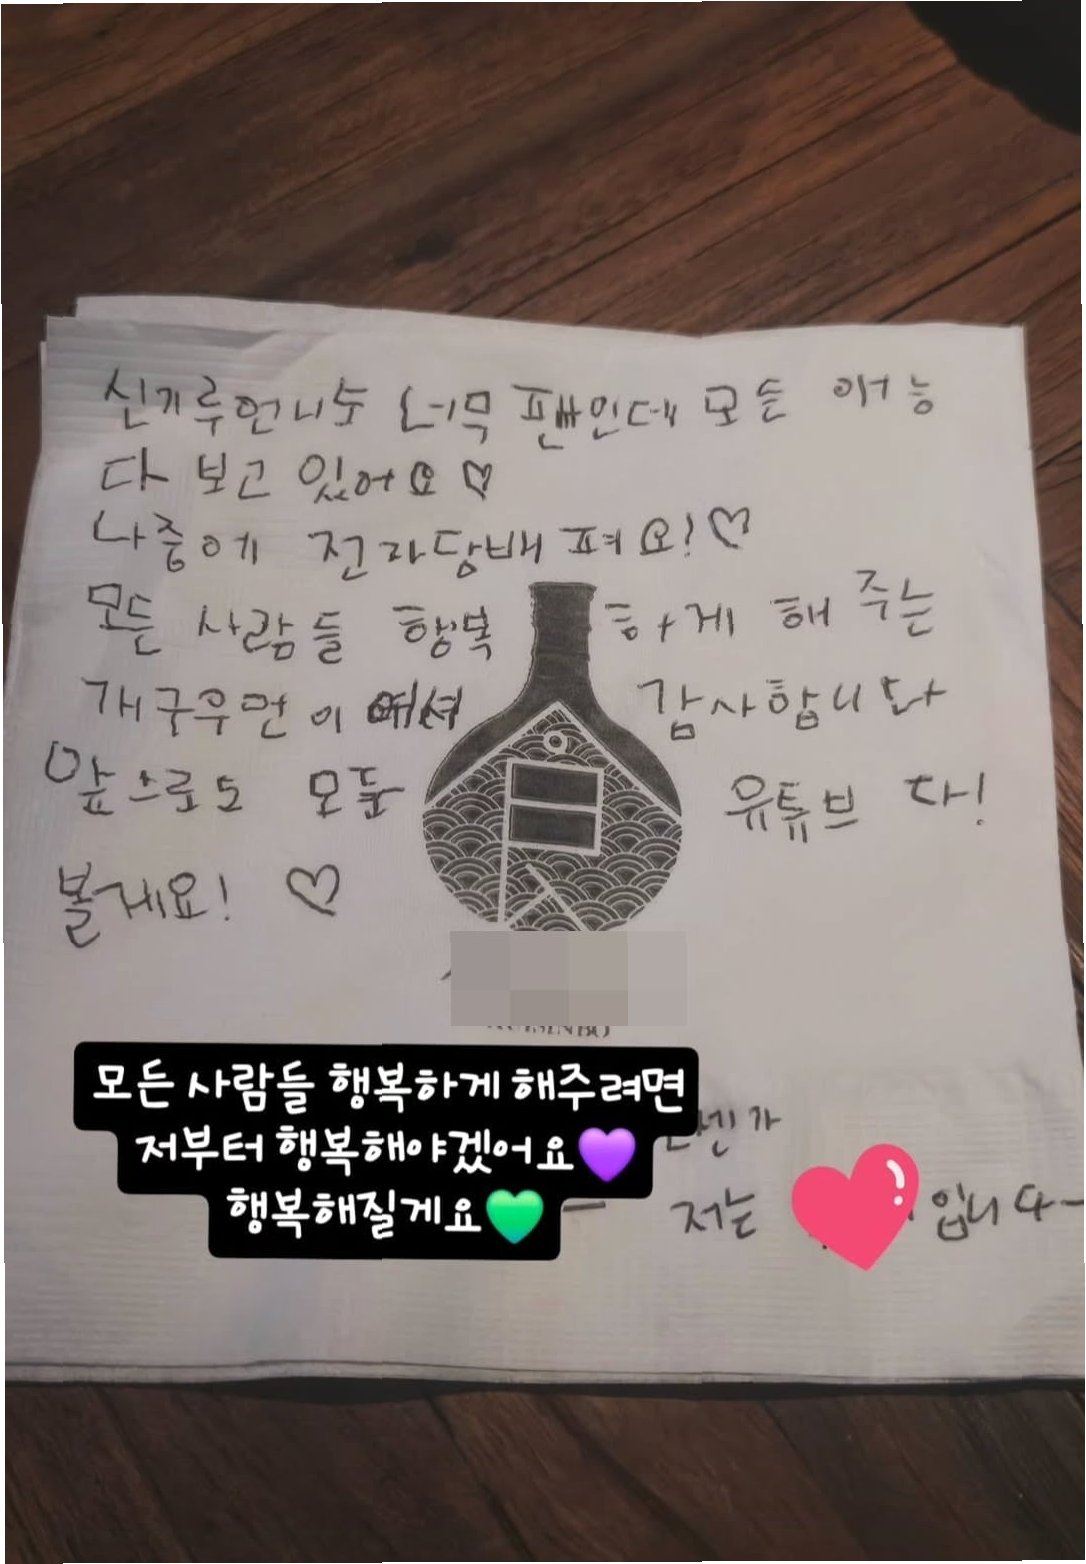 신기루언니 너무 팬인데 모든 예능
다 보고 있어요♡
나중에 전자담배 펴요!♡
모든 사람들 행복 하게 해 주는
개구우먼이여셔 감사합니다
앞스로도 모든 유튜브 다!
볼게요! ♡
모든 사람들 행복하게 해주려면
저부터 행복해야겠어요💜
행복해질게요💚
저는 입니다~